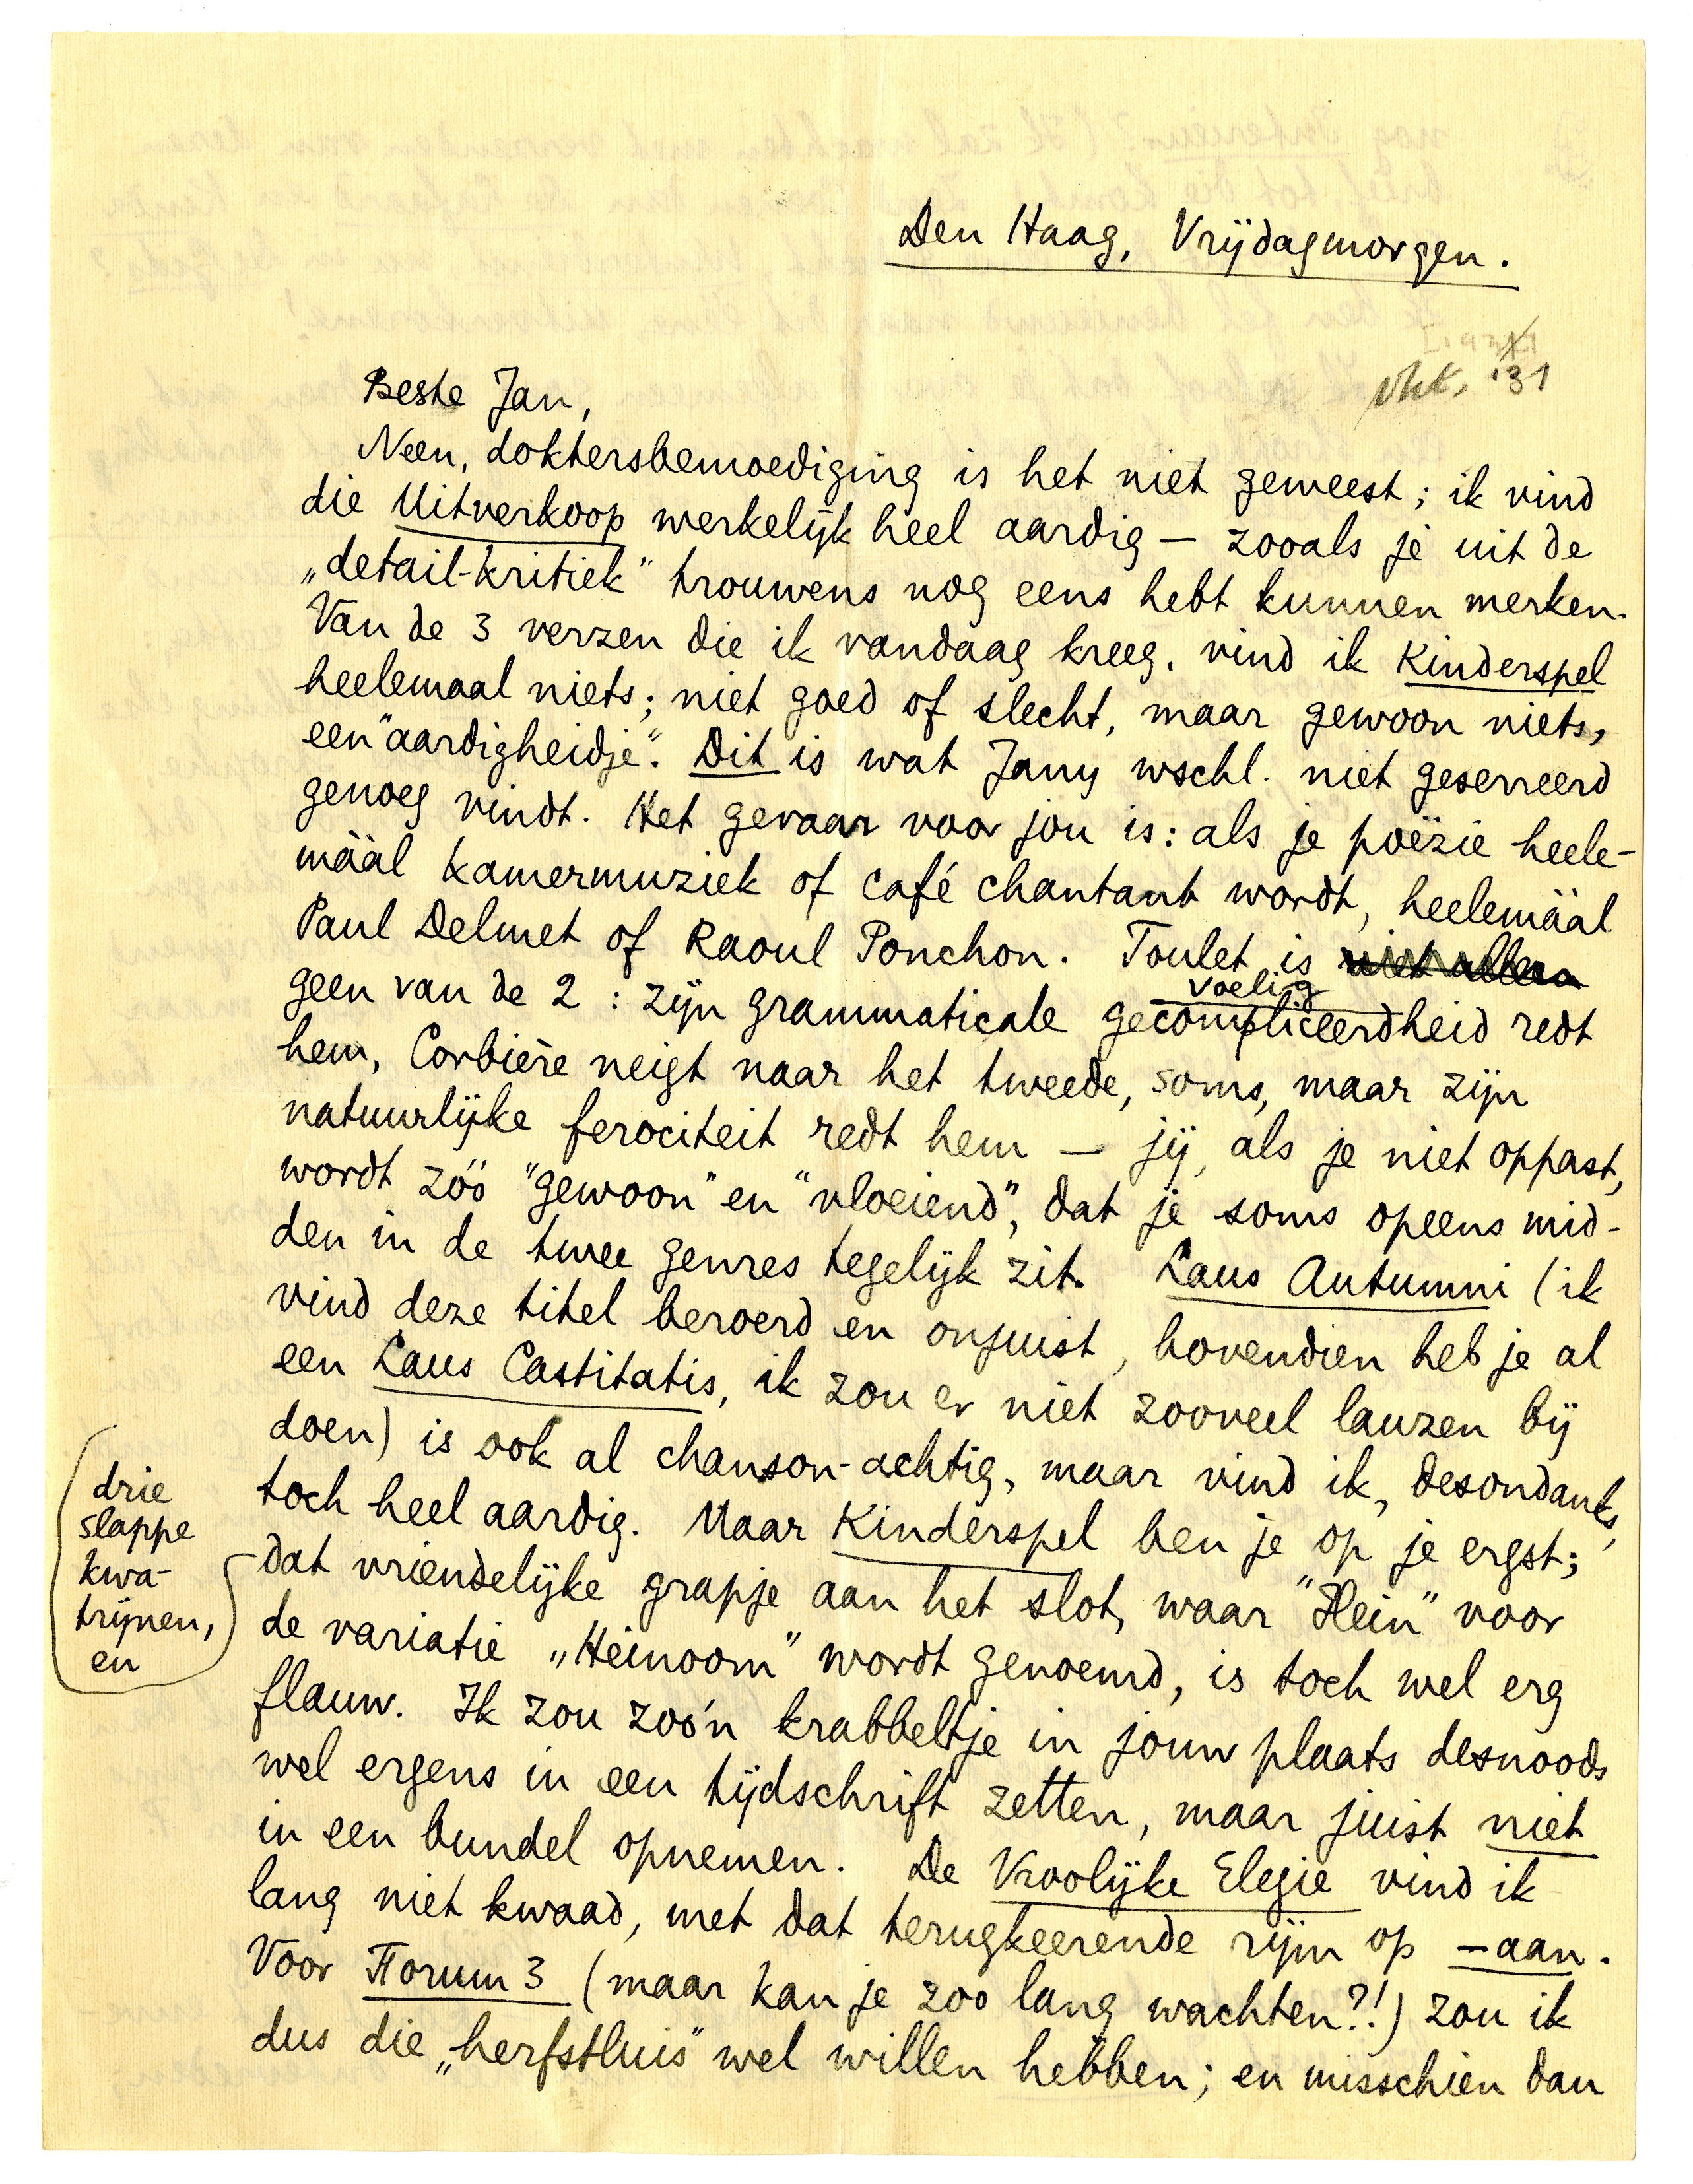 Den Haag, Vrijdagmorgen.
'31
Beste Jan,
Neen, doktersbemoediging is het niet geweest; ik vind
die Uitverkoop werkelijk heel aardig — zooals je uit de
„detail-kritiek" trouwens nog eens hebt kunnen merken.
Van de 3 verzen die ik vandaag kreeg, vind ik Kinderspel
heelemaal niets; niet goed of slecht, maar gewoon niets,
een "aardigheidje". Dit is wat Jany wschl. niet geserreerd
genoeg vindt. Het gevaar voor jou is: als je poëzie heele-
máál kamermuziek of café chantant wordt, heelemáál
Paul Delmet of Raoul Ponchon. Toulet is niet alleen
geen van de 2: zijn grammaticale gecompliceerdheid redt
voelig
hem, Corbière neigt naar het tweede, soms, maar zijn
natuurlijke ferociteit redt hem — jij, als je niet oppast,
wordt zóó "gewoon" en "vloeiend", dat je soms opeens mid-
den in de twee genres tegelijk zit. Laus Autumni (ik
vind deze titel beroerd en onjuist, bovendien heb je al
een Laus Castitatis, ik zou er niet zooveel lauzen bij
doen) is ook al chanson-achtig, maar vind ik, desondanks,
toch heel aardig. Maar Kinderspel ben je op je ergst;
drie
slappe
kwa-
trijnen,
en
dat vriendelijke grapje aan het slot, waar "Hein" voor
de variatie „Heinoom" wordt genoemd, is toch wel erg
flauw. Ik zou zoo'n krabbeltje in jouw plaats desnoods
wel ergens in een tijdschrift zetten, maar juist niet
in een bundel opnemen. De Vroolijke Elegie vind ik
lang niet kwaad, met dat terugkeerende rijm op —aan.
Voor Forum 3 (maar kan je zoo lang wachten?!) zou ik
dus die „herfstluis" wel willen hebben; en misschien dan